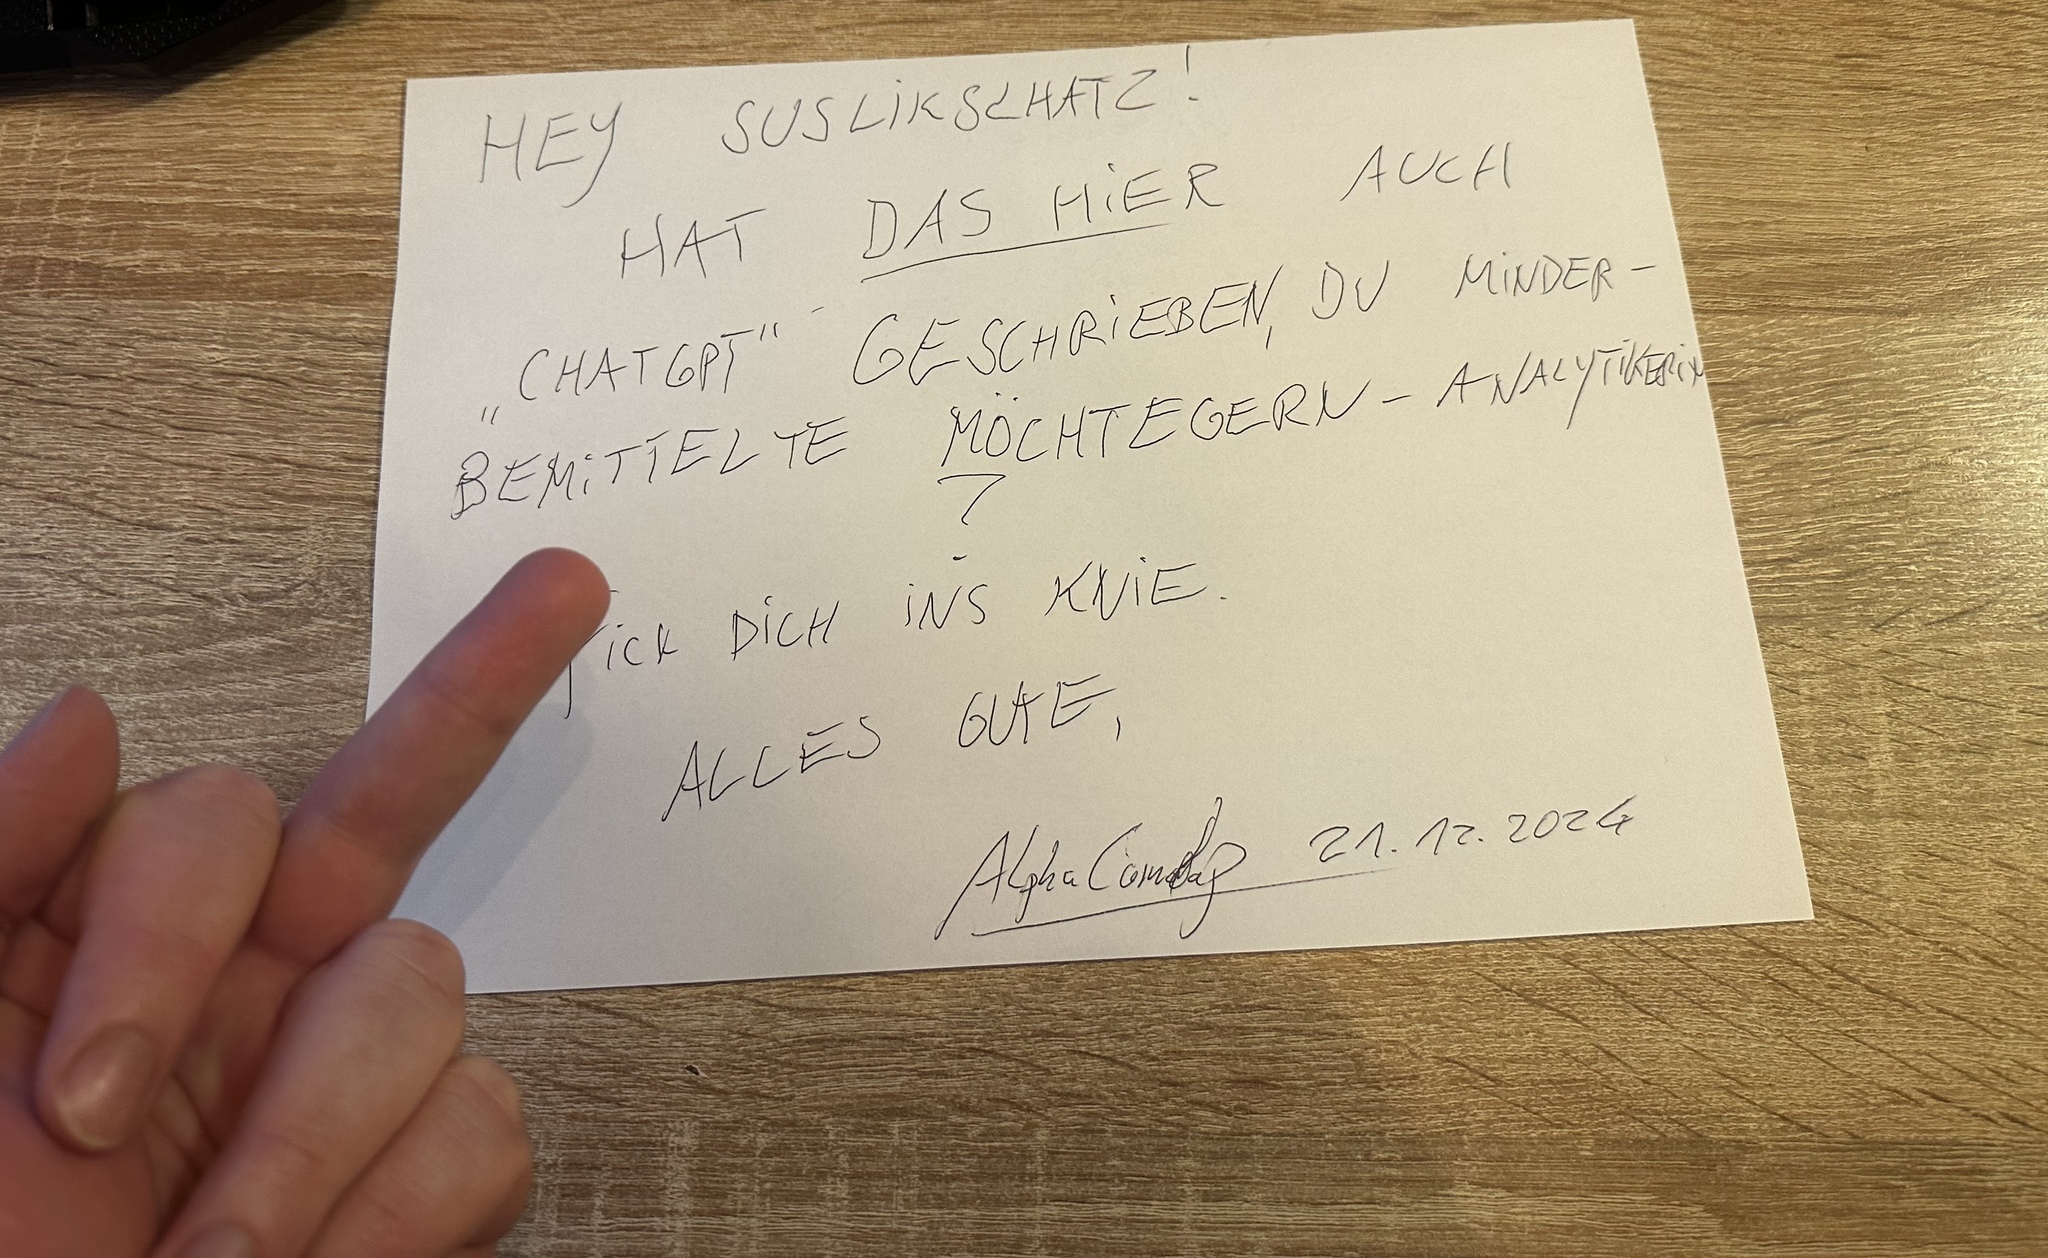 HEY SUSLIKSCHATZ!
HAT DAS HIER AUCH
„CHATGPT“ GESCHRIEBEN, DU MINDER-
BEMITTELTE MÖCHTEGERN-ANALYTIKERIN
?
FICK DICH INS KNIE.
ALLES GUTE,
21.12.2024